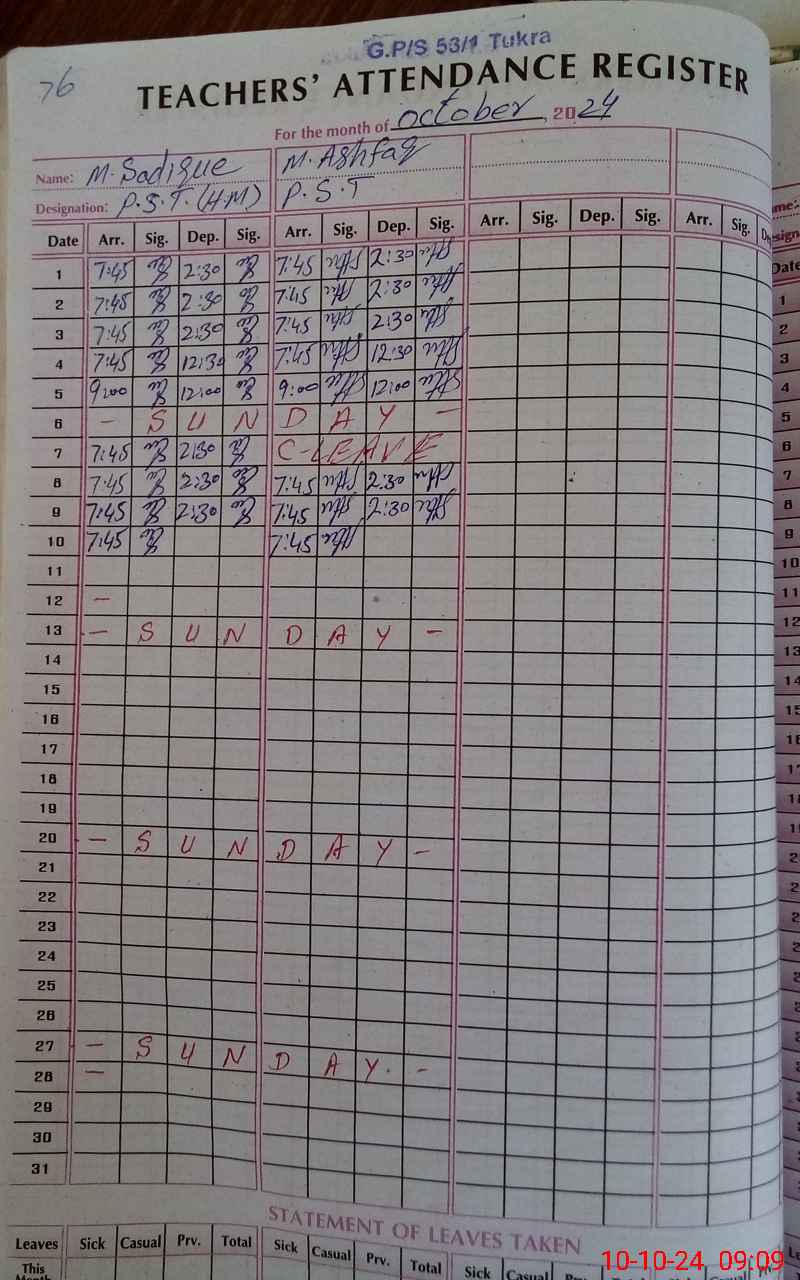 G.P/S 53/1 Tukra
76
TEACHERS' ATTENDANCE REGISTER
For the month of october, 2024
Name: M. Sadique M. Ashfaq
Designation: P.S.T. (H.M) P.S.T
Date Arr. Sig. Dep. Sig. Arr. Sig. Dep. Sig. Arr. Sig. Dep. Sig. Arr. Sig.
1 7:45 2:30 7:45 2:30
2 7:45 2:30 7:45 2:30
3 7:45 2:30 7:45 2:30
4 7:45 12:30 7:45 12:30
5 9:00 12:00 9:00 12:00
6 - S U N D A Y -
7 7:45 2:30 C-LEAVE
8 7:45 2:30 7:45 2:30
9 7:45 2:30 7:45 2:30
10 7:45 7:45
11
12 -
13 - S U N D A Y -
14
15
16
17
18
19
20 - S U N D A Y -
21
22
23
24
25
26
27 - S U N D A Y. -
28 -
29
30
31
STATEMENT OF LEAVES TAKEN
Leaves Sick Casual Prv. Total Sick Casual Prv. Total Sick Casual
This
Month
10-10-24 09:09